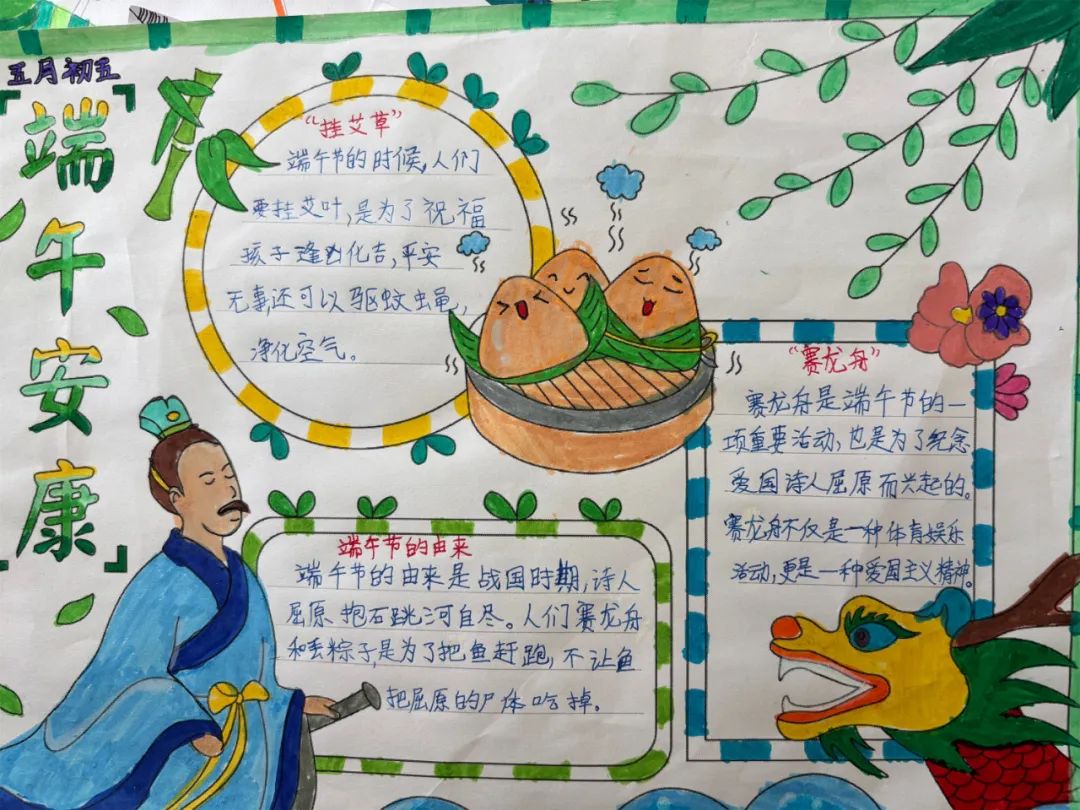 五月初五
端午、安康
“挂艾草”
端午节的时候,人们
要挂艾叶,是为了祝福
孩子逢凶化吉,平安
无事,还可以驱蚊虫蝇,
净化空气。
“赛龙舟”
赛龙舟是端午节的一
项重要活动,也是为了纪念
爱国诗人屈原而兴起的。
赛龙舟不仅是一种体育娱乐
活动,更是一种爱国主义精神。
端午节的由来
端午节的由来是战国时期,诗人
屈原抱石跳河自尽。人们赛龙舟
和丢粽子,是为了把鱼赶跑,不让鱼
把屈原的尸体吃掉。